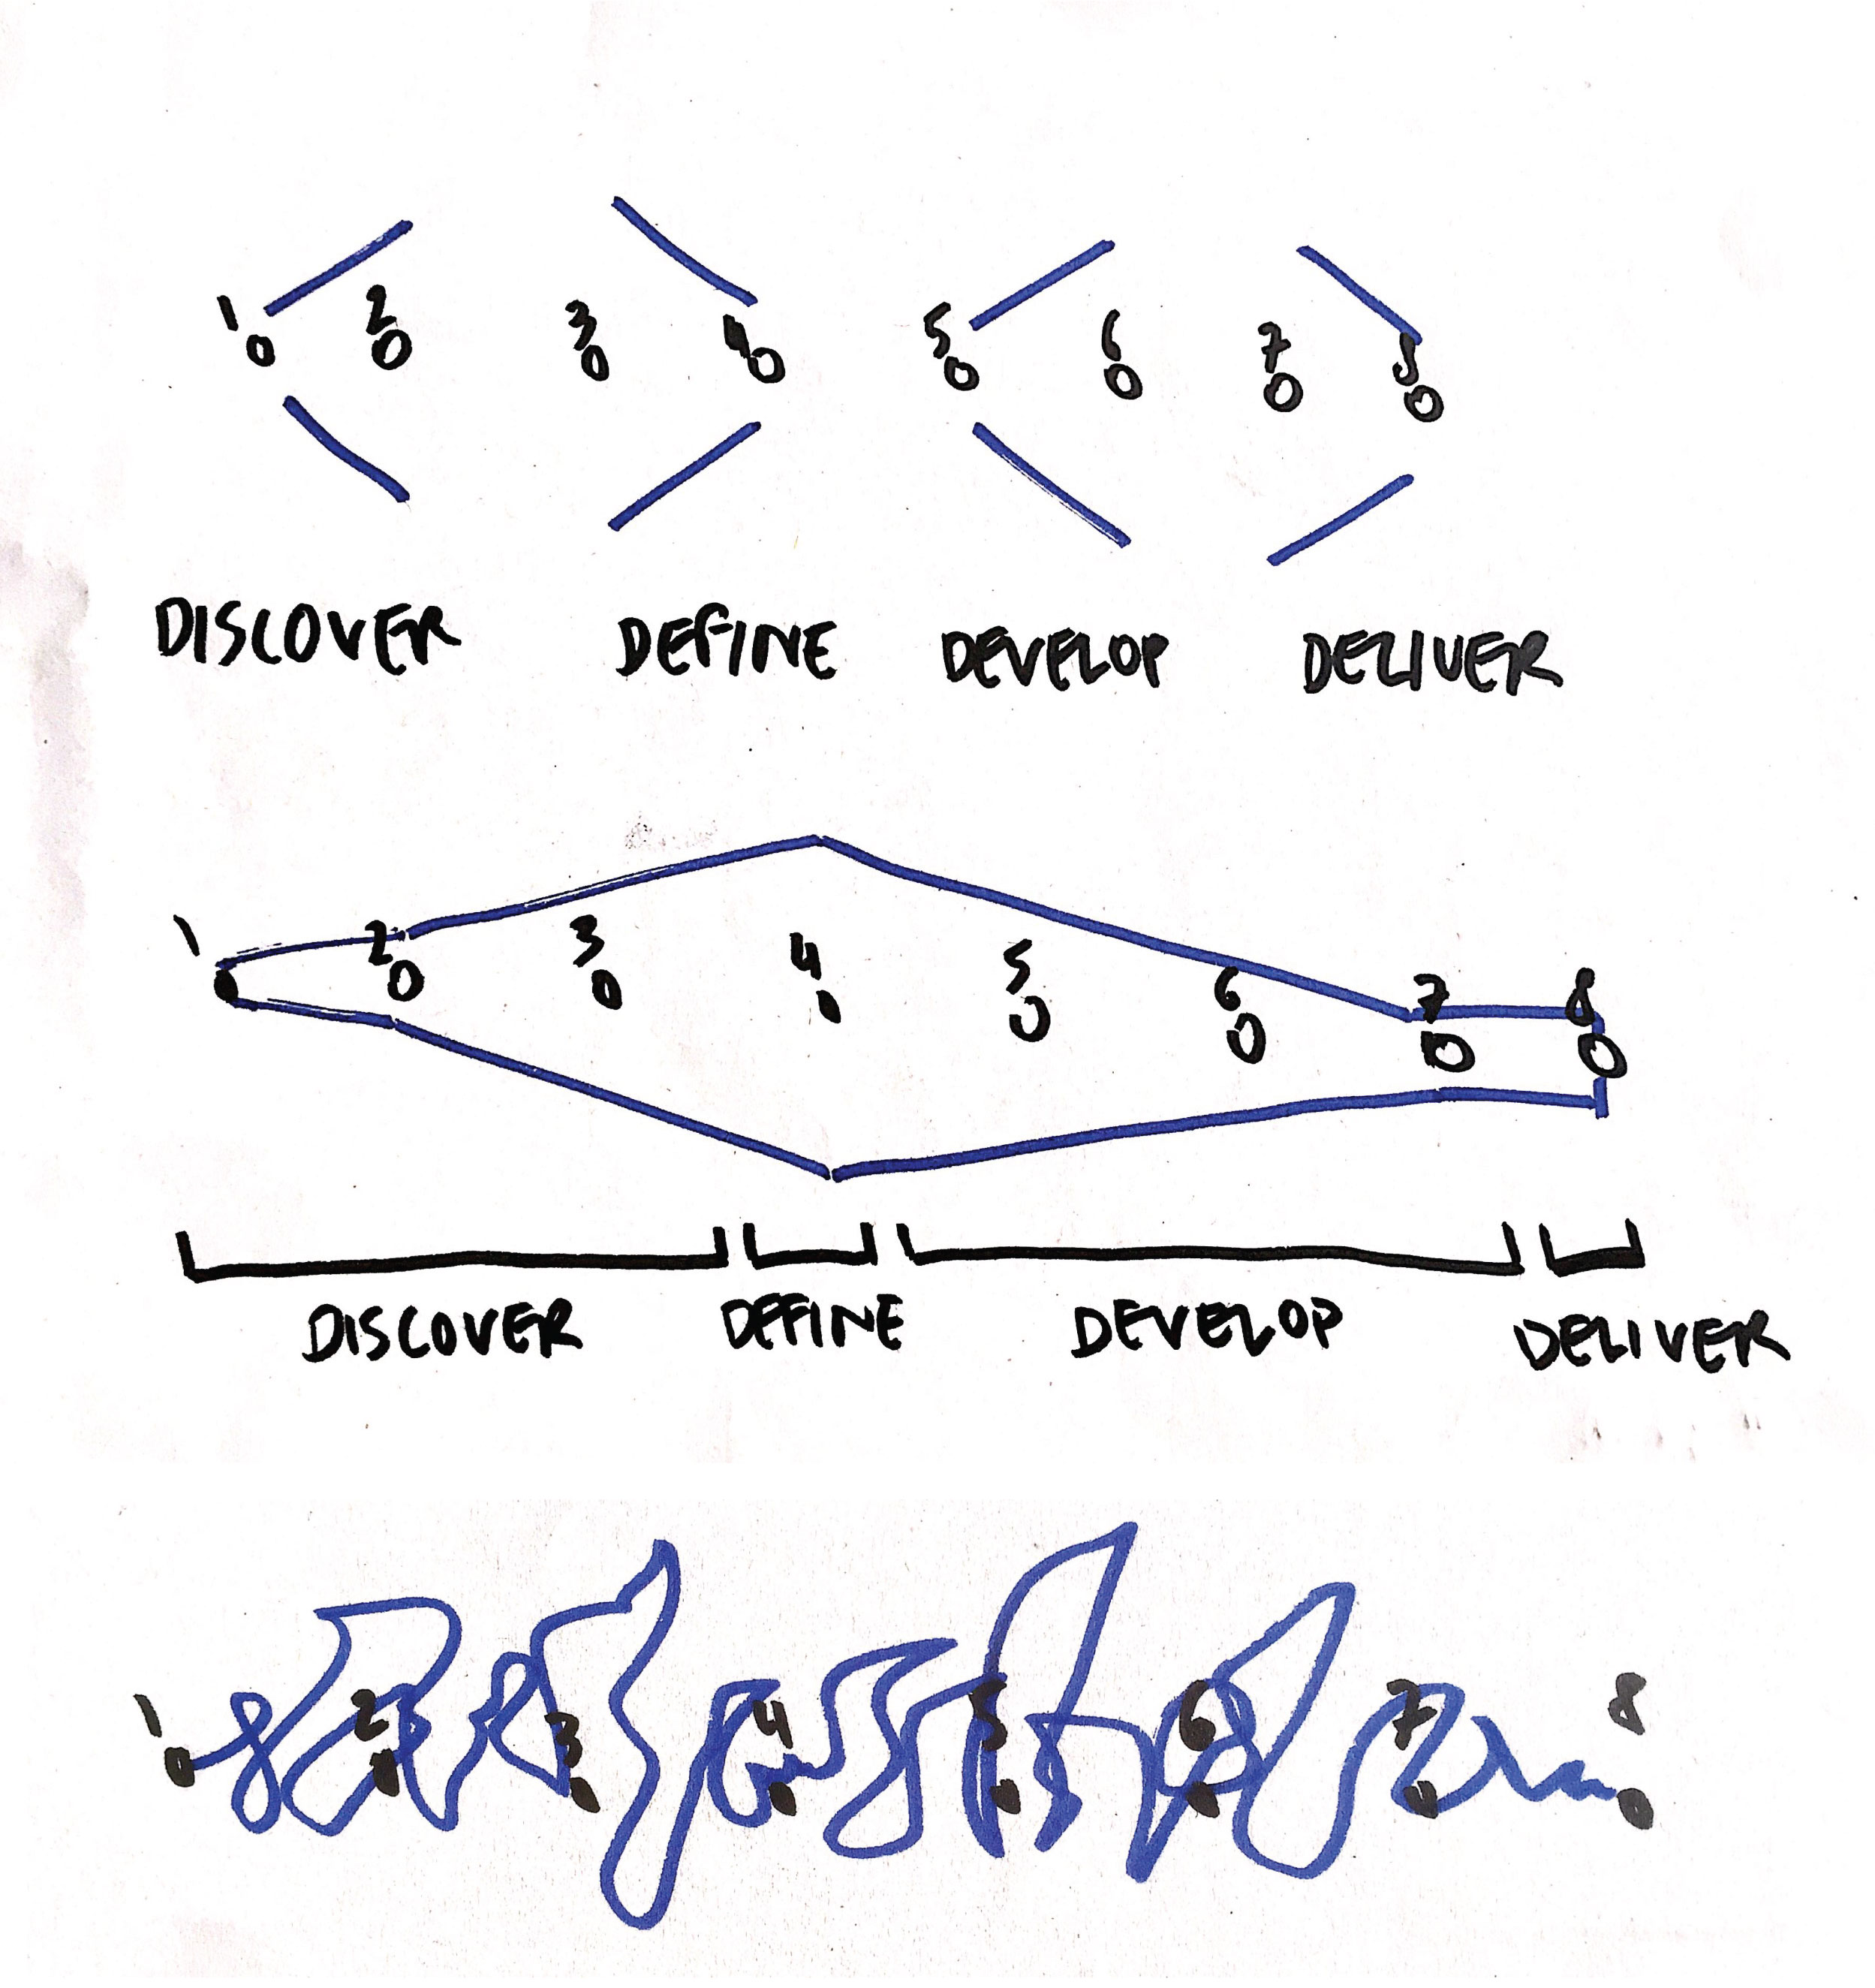 1 2 3 4 5 6 7 8
DISCOVER DEFINE DEVELOP DELIVER
1 2 3 4 5 6 7 8
DISCOVER DEFINE DEVELOP DELIVER
1 2 3 4 5 6 7 8